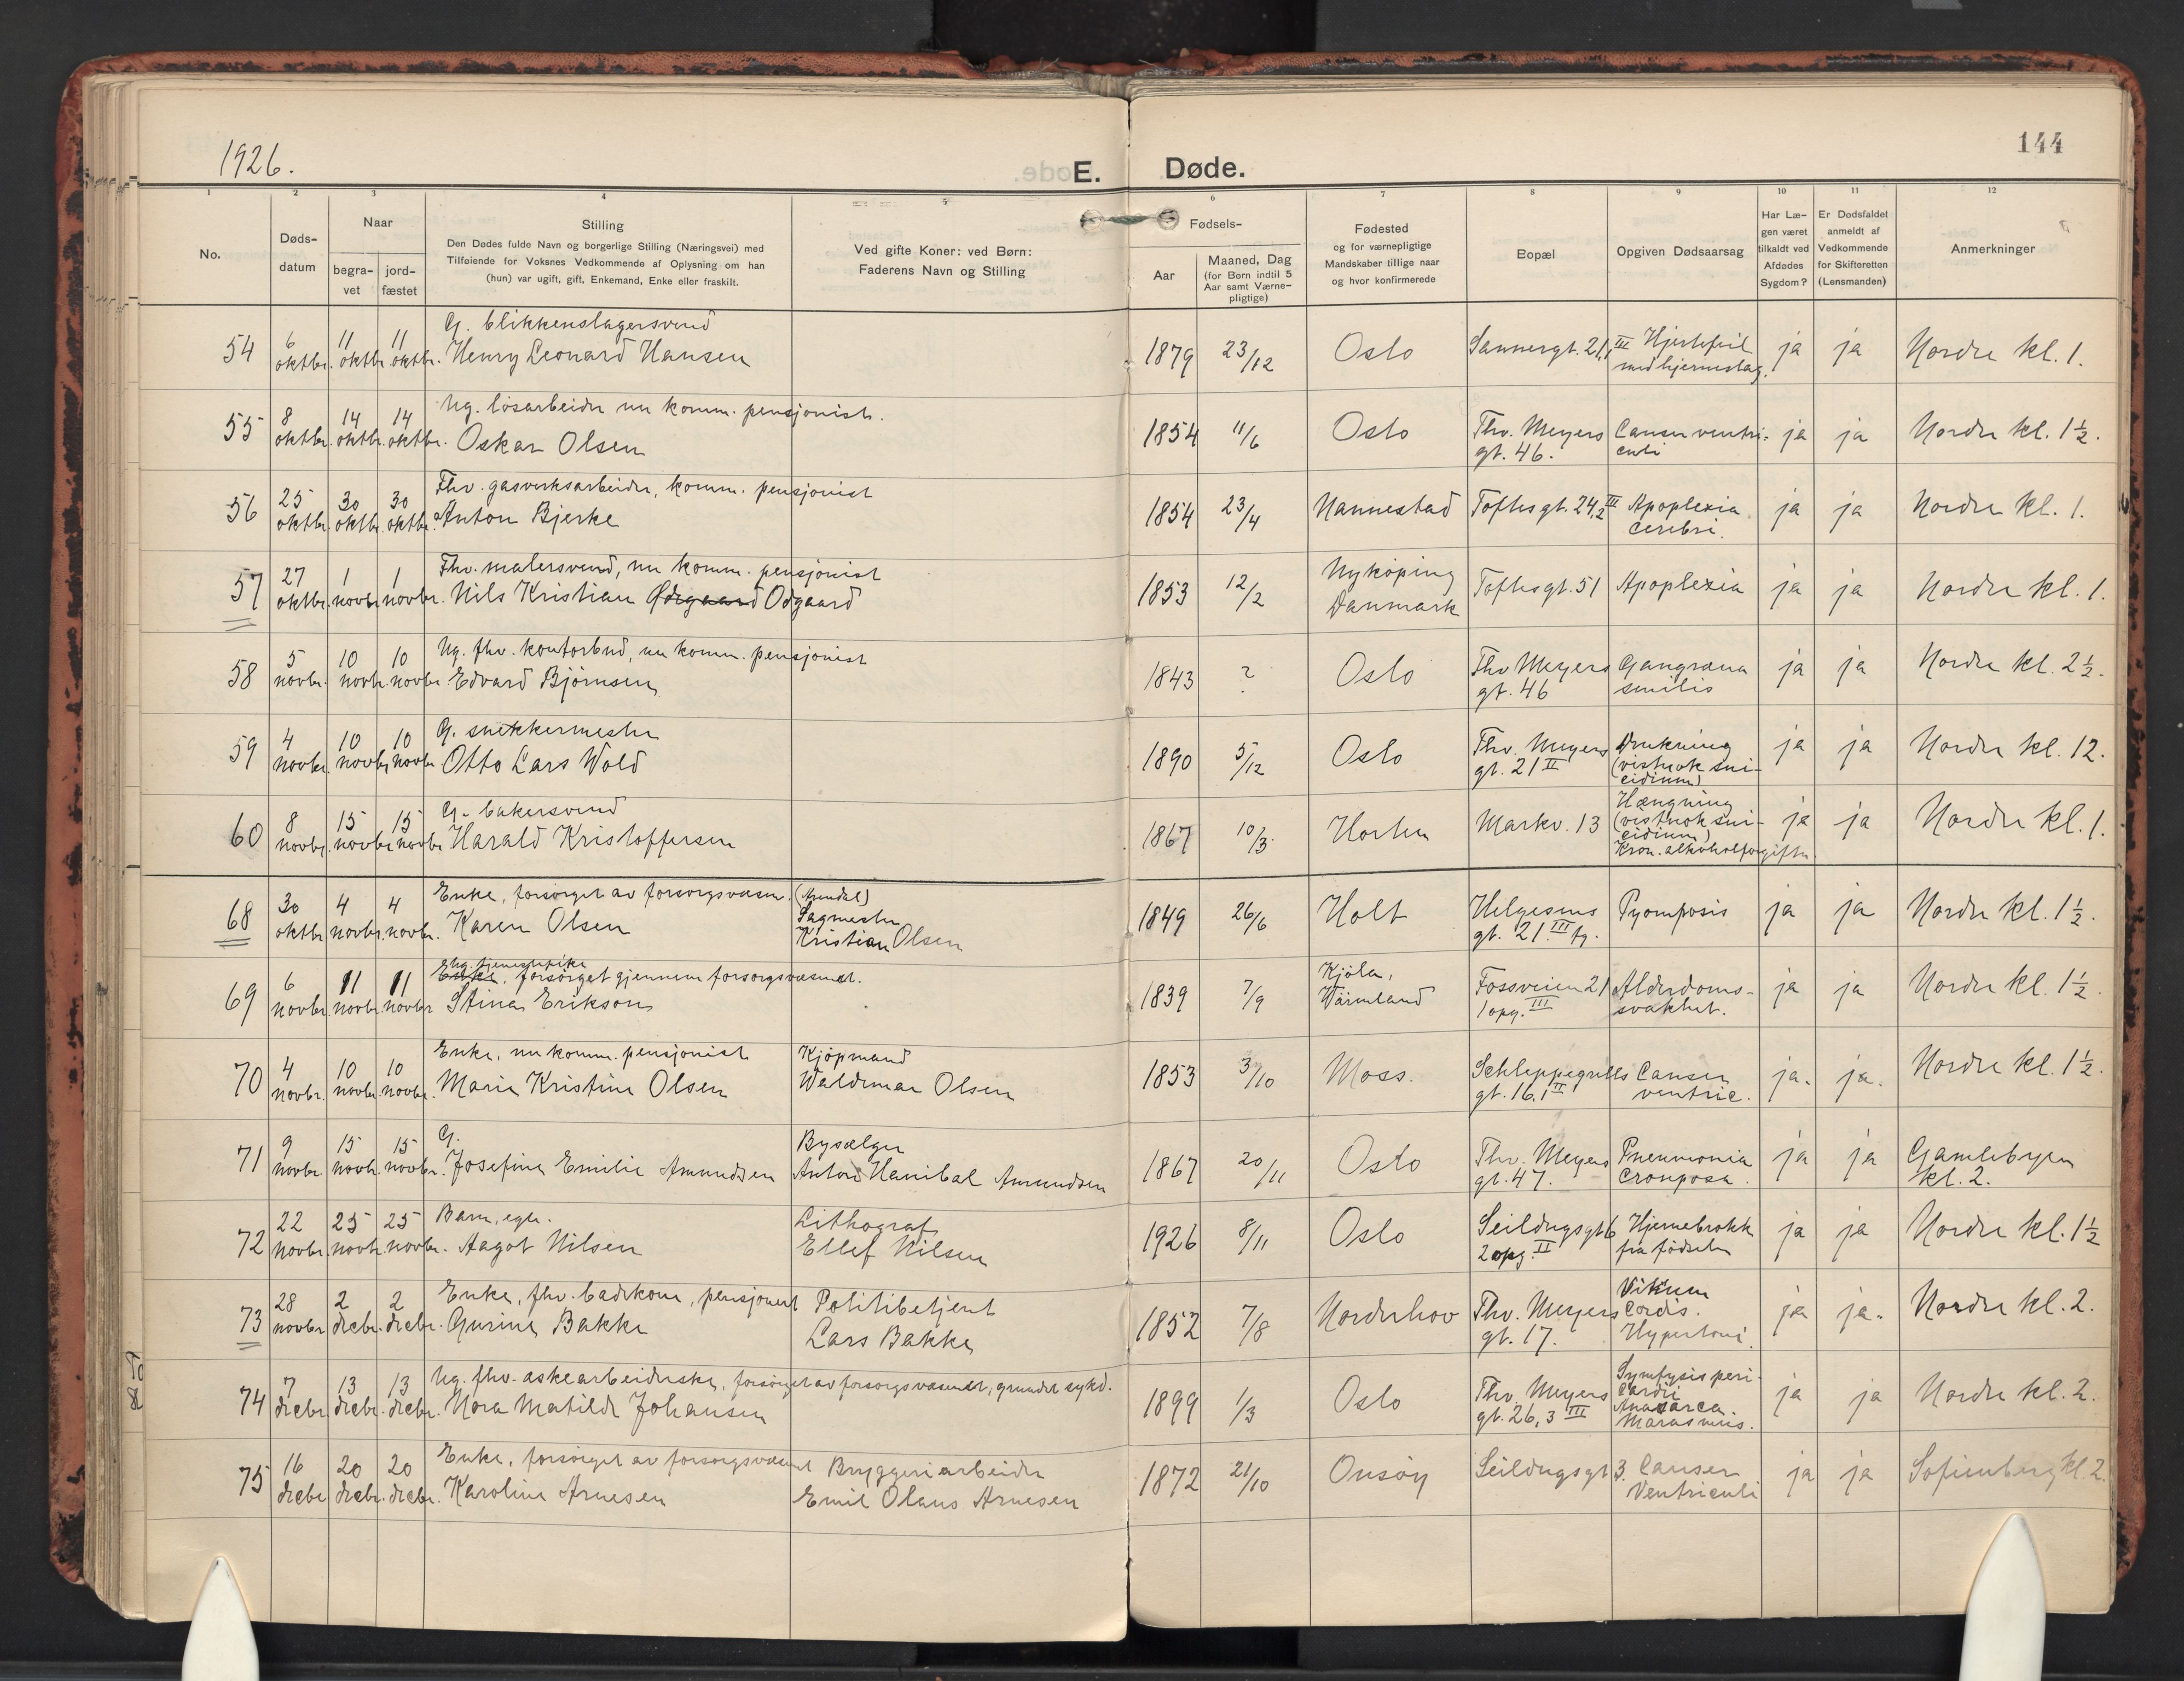 1926.
E. Døde.
144
1 2 3 4 5 6 7 8 9 10 11 12
No.
Døds-
datum
Naar
begra-
vet
jord-
fæstet
Stilling
Den Dødes fulde Navn og borgerlige Stilling (Næringsvei) med
Tilføiende for Voksnes Vedkommende af Oplysning om han
(hun) var ugift, gift, Enkemand, Enke eller fraskilt.
Ved gifte Koner: ved Børn:
Faderens Navn og Stilling
Fødsels-
Aar
Maaned, Dag
(for Børn indtil 5
Aar samt Værne-
pligtige)
Fødested
og for værnepligtige
Mandskaber tillige naar
og hvor konfirmerede
Bopæl
Opgiven Dødsaarsag
Har Læ-
gen været
tilkaldt ved
Afdødes
Sygdom?
Er Dødsfaldet
anmeldt af
Vedkommende
for Skifteretten
(Lensmanden)
Anmerkninger
G. blikkenslagersvend
54 6 oktbr. 11 oktbr. 11 oktbr. Henry Leonard Hansen 1879 23/12 Oslo Sannergt. 21,1 III Hjertefeil
med hjerneslag. ja ja Nordre kl. 1.
Ug. løsarbeider nu komm. pensjonist.
55 8 oktbr. 14 oktbr. 14 oktbr. Oskar Olsen 1854 11/6 Oslo Thv. Meyers
gt. 46. Cancer ventri-
culi ja ja Nordre kl. 1½.
Fhv. gasverksarbeider, komm. pensjonist
56 25 oktbr. 30 oktbr. 30 oktbr. Anton Bjerke 1854 23/4 Nannestad Toftesgt. 24,2 III Apoplexia
cerebri. ja ja Nordre kl. 1.
Fhv. malersvend, nu komm. pensjonist
57 27 oktbr. 1 novbr. 1 novbr. Nils Kristian Ødegaard Odgaard 1853 12/2 Nykøping
Danmark Toftesgt. 51 Apoplexia ja ja Nordre kl. 1.
Ug. fhv. kontorbud, nu komm. pensjonist
58 5 novbr. 10 novbr. 10 novbr Edvard Bjørnsen 1843 ? Oslo Thv Meyers
gt. 46 Gangræna
senilis ja ja Nordre kl. 2½.
G. snekkermester
59 4 novbr. 10 novbr. 10 novbr Otto Lars Wold 1890 5/12 Oslo Thv. Meyers
gt. 21 II Drukning
(vistnok sui-
cidium) ja ja Nordre kl. 12.
G. bakersvend
60 8 novbr. 15 novbr 15 novbr Harald Kristoffersen 1867 10/3 Horten Markv. 13 Hængning
(vistnok sui-
cidium)
Kron. alkoholforgiftn. ja ja Nordre kl. 1.
Enke, forsørget av forsorgsvæsen. (Arendal)
68 30 oktbr 4 novbr. 4 novbr. Karen Olsen Sagmester
Kristian Olsen 1849 26/6 Holt Helgesens
gt. 21. III tg. Pyomposis ja ja Nordre kl. 1½.
Ug. tjenestepike
Enke, forsørget gjennem forsorgsvæsenet.
69 6 novbr. 11 novbr. 11 novbr Stina Erikson 1839 7/9 Kjøla,
Wärmland Fossveien 21
1 opg. III Alderdoms-
svakhet. ja ja Nordre kl. 1½.
Enke, nu komm. pensjonist
70 4 novbr. 10 novbr. 10 novbr. Marie Kristine Olsen Kjøpmand
Waldemar Olsen 1853 3/10 Moss. Schleppegrells
gt. 16.1 II Cancer
ventric. ja. ja. Nordre kl. 1½.
G.
71 9 novbr. 15 novbr. 15 novbr. Josefine Emilie Amundsen Bysælger
Anton Hanibal Amundsen 1867 20/11 Oslo Thv. Meyers
gt. 47. Pneumonia
crouposa. ja ja Gamlebyen
kl. 2.
Barn, egte.
72 22 novbr. 25 novbr. 25 novbr. Aagot Nilsen Lithograf
Ellef Nilsen 1926 8/11 Oslo Seildugsgt 6
2 opg. II Hjernebrokk
fra fødselen ja ja Nordre kl. 1½
Enke, fhv. badekone, pensjonert
73 28 novbr 2 decbr. 2 decbr. Gurine Bakke Politibetjent
Lars Bakke 1852 7/8 Norderhov Thv. Meyers
gt. 17. Vitium
Cordis.
Hypertoni. ja ja. Nordre kl. 2.
Ug. fhv. askearbeiderske, forsørget av forsorgsvæsenet, grundet sykd.
74 7 decbr. 13 decbr. 13 decbr. Nora Matilde Johansen 1899 1/3 Oslo Thv. Meyers
gt. 26, 3 III Symfysis peri-
cardii
Anasarca
Marasmus. ja ja Nordre kl. 2.
Enke, forsørget av forsorgsvæsenet
75 16 decbr 20 decbr. 20 decbr. Karoline Arnesen Bryggeriarbeider
Emil Olaus Arnesen 1872 21/10 Onsøy Seildugsgt 3. Cancer
Ventriculi ja ja Sofienberg kl. 2.